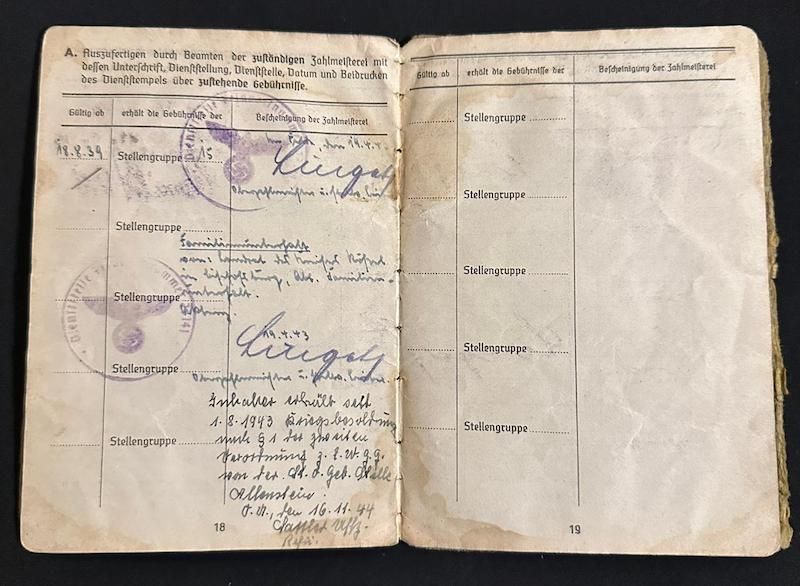 A. Auszufertigen durch Beamten der zuständigen Zahlmeisterei mit
dessen Unterschrift, Dienststellung, Dienststelle, Datum und Beidrucken
des Dienststempels über zustehende Gebührnisse.
Gültig ab erhält die Gebührnisse der Bescheinigung der Zahlmeisterei
18.8.39 Stellengruppe 15
den 19.4.
Stellengruppe
Familienunterhalt
von: Landrat des Kreises Rößel
in Bischofsburg, Abt. Familien-
unterhalt.
Stellengruppe
Dienststelle
19.4.43
Stellengruppe
Inhaber erhält seit
1.8.1943 Kriegsbesoldung
nach § 1 der zweiten
Verordnung z. E.W.G.G.
Stellengruppe
von der St. O. Geb. Stelle
Allenstein.
O.U., den 16.11.44
Sattler Uffz.
18
Gültig ab erhält die Gebührnisse der Bescheinigung der Zahlmeisterei
Stellengruppe
Stellengruppe
Stellengruppe
Stellengruppe
Stellengruppe
19